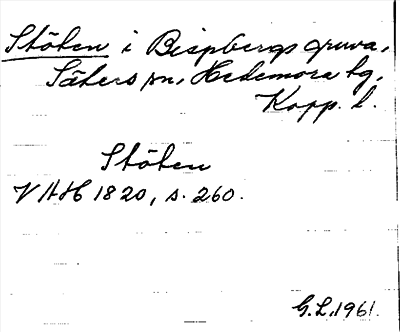 Stöten i Bispbergs gruva,
Säters sn, Hedemora tg,
Kopp. l.
Stöten
VAH 1820, s. 260.
G.L. 1961.